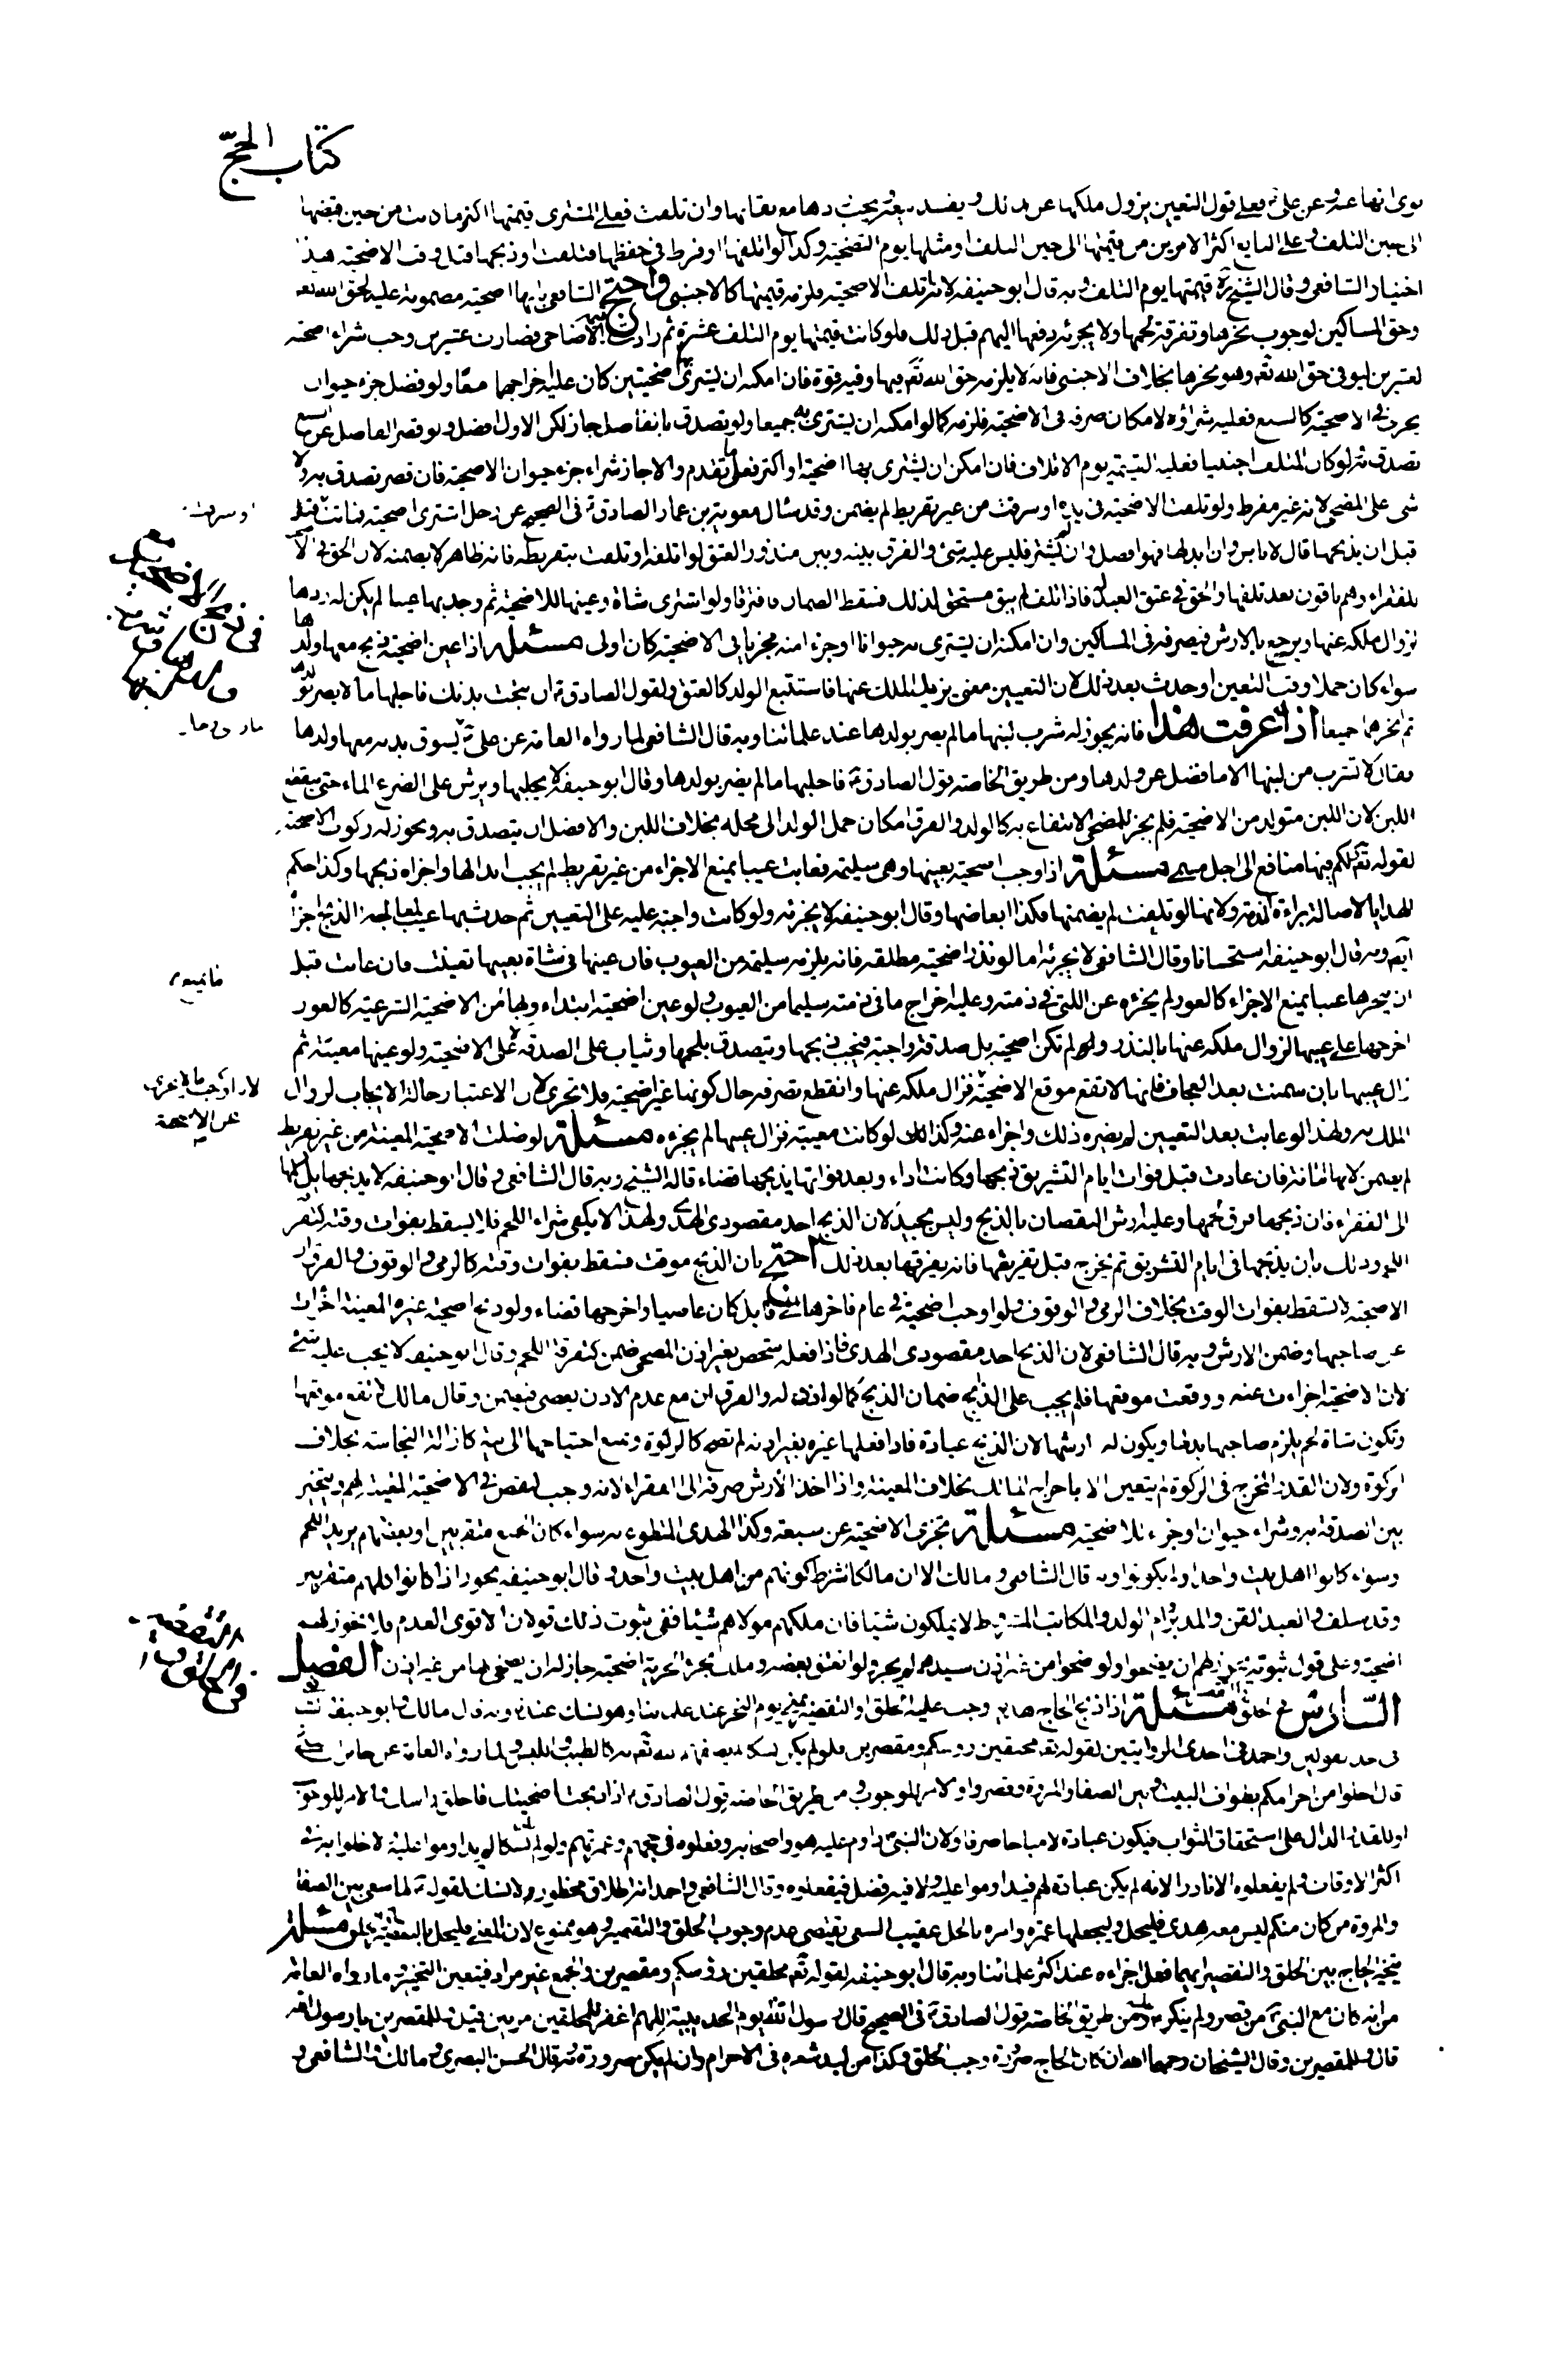 كتاب الحج
فعلى قول التعيين يزول ملكها عن مالك ويفسد بيعه ويجب ردها مع بقائها وان تلفت فعلى المشترى قيمتها اكثر ما كانت من حين قبضها
الى حين التلف وعلى البايع اكثر الامرين من قيمتها الى حين التلف او مثلها يوم التضحية وكذا لو اتلفها او فرط في حفظها فتلفت او ذبحها قبل وقت الاضحية هذا
اختيار الشافعى وقال الشيخ ره قيمتها يوم التلف وبه قال ابو حنيفه لانه اتلف الاضحية فلزمه قيمتها كالاجنبى واحتج الشافعى بانها اضحية مضمونة عليه لحق الله تعه
وحق المساكين لوجوب نحرها وتفرقة لحمها ولا يجزئه دفعها اليهم قبل ذلك فلو كانت قيمتها يوم التلف عشرة ثم زادت الاضاحى فصارت عشرين وجب شراء اضحية
بعشرين ليوفى حق الله تعه وهو نحرها بخلاف الاجنبى فانه لا يلزمه حق الله تعه فيها وفيه قوة فان امكنه ان يشترى بها اضحيتين كان عليه اخراجهما معا ولو فضل جزء حيوان
يجزى في الاضحية كالسبع فعليه شراؤه لامكان صرفه فى الاضحية فلزمه كما لو امكنه ان يشترى به جميعا ولو تصدق بالفاضل جاز لكن الاول افضل ولو قصر الفاضل عن السبع
تصدق به ولو كان المتلف اجنبيا فعليه القيمة يوم الاتلاف فان امكن ان يشترى بها اضحية او اكثر فعلى ما تقدم والا جاز شراء جزء حيوان الاضحية فان قصر تصدق به ولا
شى على المضحى لانه غير مفرط ولو تلفت الاضحية فى يده او سرقت من غير تفريط لم يضمن وقد سئال معوية بن عمار الصادق ع فى الصحيح عن رجل اشترى اضحية فماتت او سرقت قبل
قبل ان يذبحها قال لا باس وان ابدلها فهو افضل وان لم يشتر فليس عليه شئ والفرق بينه وبين منذور العتق لو اتلفه او تلف بتفريطه فانه ظاهرا لا يضمنه لان الحق فى الاضحية
للفقراء وهم باقون بعد تلفها والحق فى عتق العبد له فاذا تلف لم يبق مستحق لذلك فسقط الضمان فافترقا ولو اشترى شاة وعينها للاضحية ثم وجد بها عيبا لم يكن له ردها
لزوال ملكه عنها ويرجع بالارش فيصرفه فى المساكين وان امكنه ان يشترى به حيوانا او جزءا منه مجزيا فى الاضحية كان اولى مسئلة اذا عين اضحية ذبح معها ولدها
سواء كان حملا وقت التعيين او حدث بعد ذلك لان التعيين معنى يزيل الملك عنها فاستتبع الولد كالعتق ولقول الصادق ع ان نتجت بدنتك فاحلبها ما لا يضر بولدها
ثم انحرهما جميعا اذا عرفت هذا فانه يجوز له شرب لبنها ما لم يضر بولدها عند علمائنا وبه قال الشافعى لما رواه العامة عن على ع يسوق بدنة معها ولدها
فقال لا تشرب من لبنها الا ما فضل عن ولدها ومن طريق الخاصة قول الصادق ع فاحلبها ما لم يضر بولدها وقال ابو حنيفه لا يحلبها ويرش على الضرع الماء حتى ينقطع
اللبن لان اللبن متولد من الاضحية فلم يجز للمضحى الانتفاع به كالولد والفرق امكان حمل الولد الى محله بخلاف اللبن والافضل ان يتصدق به ويجوز له ركوب الاضحية
لقوله تعه لكم فيها منافع الى اجل مسمى مسئلة اذا اوجب اضحية بعينها وهى سليمة فعابت عيبا يمنع الاجزاء من غير تفريط لم يجب ابدالها واجزاه ذبحها وكذا حكم
الهدايا لاصالة براءة الذمة ولانها لو تلفت لم يضمنها فكذا ابعاضها وقال ابو حنيفه لا يجزئه ولو كانت واجبة عليه على التعيين ثم حدث بها عيب لمعالجة الذبح اجزا
ايضا وبه قال ابو حنيفه استحسانا وقال الشافعى لا يجزئه اما لو نذر اضحية مطلقة فانه يلزمه سليمة من العيوب فان عينها فى شاة بعينها تعينت فان عابت قبل
ان ينحرها عيبا يمنع الاجزاء كالعور لم يجزه عن التى فى ذمته وعليه اخراج ما فى ذمته سليما من العيوب ولو عين اضحية ابتداء وبها ما يمنع من الاضحية الشرعية كالعور
اخرجها على عيبها لزوال ملكه عنها بالنذر ولم تكن اضحية بل صدقة واجبة فيجب ذبحها ويتصدق بلحمها ويثاب على الصدقة لا على الاضحية ولو عينها معيبة ثم
زال عيبها بان سمنت بعد العجاف فانها لا تقع موقع الاضحية لانه اوجب ما لا يجزى عن الاضحية فزال ملكه عنها وانقطع تصرفه حال كونها غير اضحية فلا تجزى لان الاعتبار حالة الايجاب لزوال
الملك به ولهذا لو عابت بعد التعيين لم يضره ذلك واجزاه عنه وكذا لو كانت معيبة فزال عيبها لم يجزه مسئلة لو ضلت الاضحية المعينة من غير تفريط
لم يضمن لانها امانة فان عادت قبل فوات ايام التشريق ذبحها وكانت اداء وبعد فواتها يذبحها قضاء قاله الشيخ وبه قال الشافعى وقال ابو حنيفه لا يذبحها بل يسلمها
الى الفقراء فان ذبحها فرق لحمها وعليه ارش النقصان بالذبح وليس بجيد لان الذبح احد مقصودى الهدى ولهذا لا يكفى شراء اللحم فلا يسقط بفوات وقته كتفرقة
اللحم وذلك بان يذبحها فى ايام التشريق ثم يخرج قبل تفريقها فانه يفرقها بعد ذلك احتج بان الذبح موقت فسقط بفوات وقته كالرمى والوقوف والفرق ان
الاضحية لا تسقط بفوات الوقت بخلاف الرمى والوقوف ولو اوجب اضحية فى عام فاخرها الى قابل كان عاصيا واخرجها قضاء ولو ذبح اضحية غيره المعينة اجزات
عن صاحبها وضمن الارش وبه قال الشافعى لان الذبح احد مقصودى الهدى فاذا فعله شخص بغير اذن المضحى ضمن كتفرقة اللحم وقال ابو حنيفه لا يجب عليه شئ
لان الاضحية اجزات عنه ووقعت موقعها فلم يجب على الذابح ضمان الذبح كما لو اذن له والفرق ان مع عدم الاذن يعصى فيضمن وقال مالك لا تقع موقعها
وتكون شاة لحم يلزم صاحبها بدلها ويكون له ارشها لان الذبح عبادة فاذا فعلها غيره بغير اذنه لم تصح كالزكوة ونمنع احتياجها الى نية كازالة النجاسة بخلاف
الزكوة ولان القدر المخرج فى الزكوة لم يتعين الا باخراج المالك بخلاف المعينة واذا اخذ الارش صرفه الى الفقراء لانه وجب لنقص فى الاضحية المعينة لهم ويتخير
بين الصدقة به وشراء حيوان او جزء للاضحية مسئلة تجزى الاضحية عن سبعة وكذا الهدى المتطوع به سواء كان الجميع متقربين او بعضهم يريد اللحم
وسواء كانوا اهل بيت واحد او لم يكونوا وبه قال الشافعى ومالك الا ان مالكا شرط كونهم من اهل بيت واحد وقال ابو حنيفه يجوز اذا كانوا كلهم متقربين
وقد سلف والعبد القن والمدبر وام الولد والمكاتب المشروط لا يملكون شيئا فان ملكهم مولاهم شيئا ففى ثبوت ذلك قولان الاقوى العدم فلا تجوز لهم
اضحية وعلى قول ثبوته يجوز لهم ان يضحوا ولو ضحوا من غير اذن سيدهم لم يجز ولو انعتق بعضه وملك بجزء الحرية اضحية جاز له ان يضحى بها من غير اذن الفصل
السادس فى الحلق مسئلة اذا ذبح الحاج هديه وجب عليه الحلق او التقصير بمنى يوم النحر عند علمائنا وهو نسك عندنا وبه قال مالك وابو حنيفه والشافعى
فى احد قوليه واحمد فى احدى الروايتين لقوله تعه محلقين رؤسكم ومقصرين ولو لم يكن نسكا لم يصفهم الله تعه به كالطيب واللبس ولما رواه العامة عن جابر ان النبى
قال احلوا من احرامكم بطواف البيت وبين الصفا والمروة وقصروا والامر للوجوب ومن طريق الخاصة قول الصادق ع اذا ذبحت اضحيتك فاحلق راسك والامر للوجوب
او للقدر الدال على استحقاق الثواب فيكون عبادة لا مباحا صرفا ولان النبى ع داوم عليه هو واصحابه وفعلوه فى حجهم وعمرتهم ولو لم يكن نسكا لم يداوموا عليه لا خلوا به فى
اكثر الاوقات ولم يفعلوه الا نادرا لانه لم يكن عبادة لهم فيداوموا عليه ولا فيه فضل فيفعلوه وقال الشافعى واحمد انه اطلاق محظور ولا نسك لقوله ع لما سعى بين الصفا
والمروة من كان منكم ليس معه هدى فليحل وليجعلها عمرة وامره بالحل عقيب السعى يقتضى عدم وجوب الحلق والتقصير وهو ممنوع لان المعنى فليحل بالتقصير او الحلق مسئلة
يتخير الحاج بين الحلق والتقصير ايهما فعل اجزاه عند اكثر علمائنا وبه قال ابو حنيفه لقوله تعه محلقين رؤسكم ومقصرين والجمع غير مراد فيتعين التخيير وما رواه العامة
من انه كان مع النبى ع من قصر ولم ينكر عليه ومن طريق الخاصة قول الصادق ع فى الصحيح قال رسول الله يوم الحديبية اللهم اغفر للمحلقين مرتين قيل وللمقصرين يا رسول الله
قال وللمقصرين وقال الشيخان رحمهما الله ان كان الحاج صرورة وجب الحلق وكذا من لبد شعره فى الاحرام وان لم يكن صرورة وبه قال الحسن البصرى ومالك والشافعى و
او سرقت
لانه اوجب ما لا يجزى
عن الاضحية